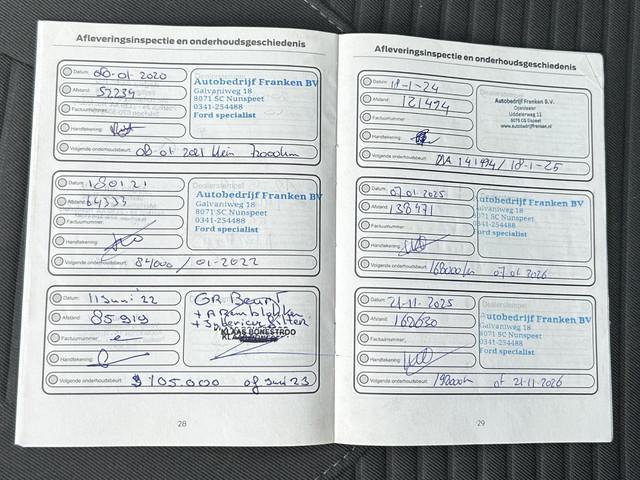 Afleveringsinspectie en onderhoudsgeschiedenis
Datum: 08-01-2020
Afstand: 52234
Factuurnummer:
Handtekening:
Volgende onderhoudsbeurt: 08 01 2021 klein 72000km
Autobedrijf Franken BV
Galvaniweg 18
8071 SC Nunspeet
0341-254488
Ford specialist
Datum: 18 01 21
Afstand: 64333
Factuurnummer:
Handtekening:
Volgende onderhoudsbeurt: 84000 / 01-2022
Dealerstempel
Autobedrijf Franken BV
Galvaniweg 18
8071 SC Nunspeet
0341-254488
Ford specialist
Datum: 11 Juni 22
Afstand: 85.919
Factuurnummer:
Handtekening:
Volgende onderhoudsbeurt: 105.000 of Juni 23
GR. Beurt
KLAAS BONESTROO
28
Afleveringsinspectie en onderhoudsgeschiedenis
Datum: 18-1-24
Afstand: 121494
Factuurnummer:
Handtekening:
Volgende onderhoudsbeurt: 141494 / 18-1-25
Autobedrijf Franken B.V.
Opeldealer
Uddelerweg 11
8075 CG Elspeet
www.autobedrijffranken.nl
Datum: 07 01 2025
Afstand: 138471
Factuurnummer:
Handtekening:
Volgende onderhoudsbeurt: 168000km 07 01 2026
Dealerstempel
Autobedrijf Franken BV
Galvaniweg 18
8071 SC Nunspeet
0341-254488
Ford specialist
Datum: 21-11-2025
Afstand: 162630
Factuurnummer:
Handtekening:
Volgende onderhoudsbeurt: 192000km of 21-11-2026
Dealerstempel
Autobedrijf Franken BV
Galvaniweg 18
8071 SC Nunspeet
0341-254488
Ford specialist
29